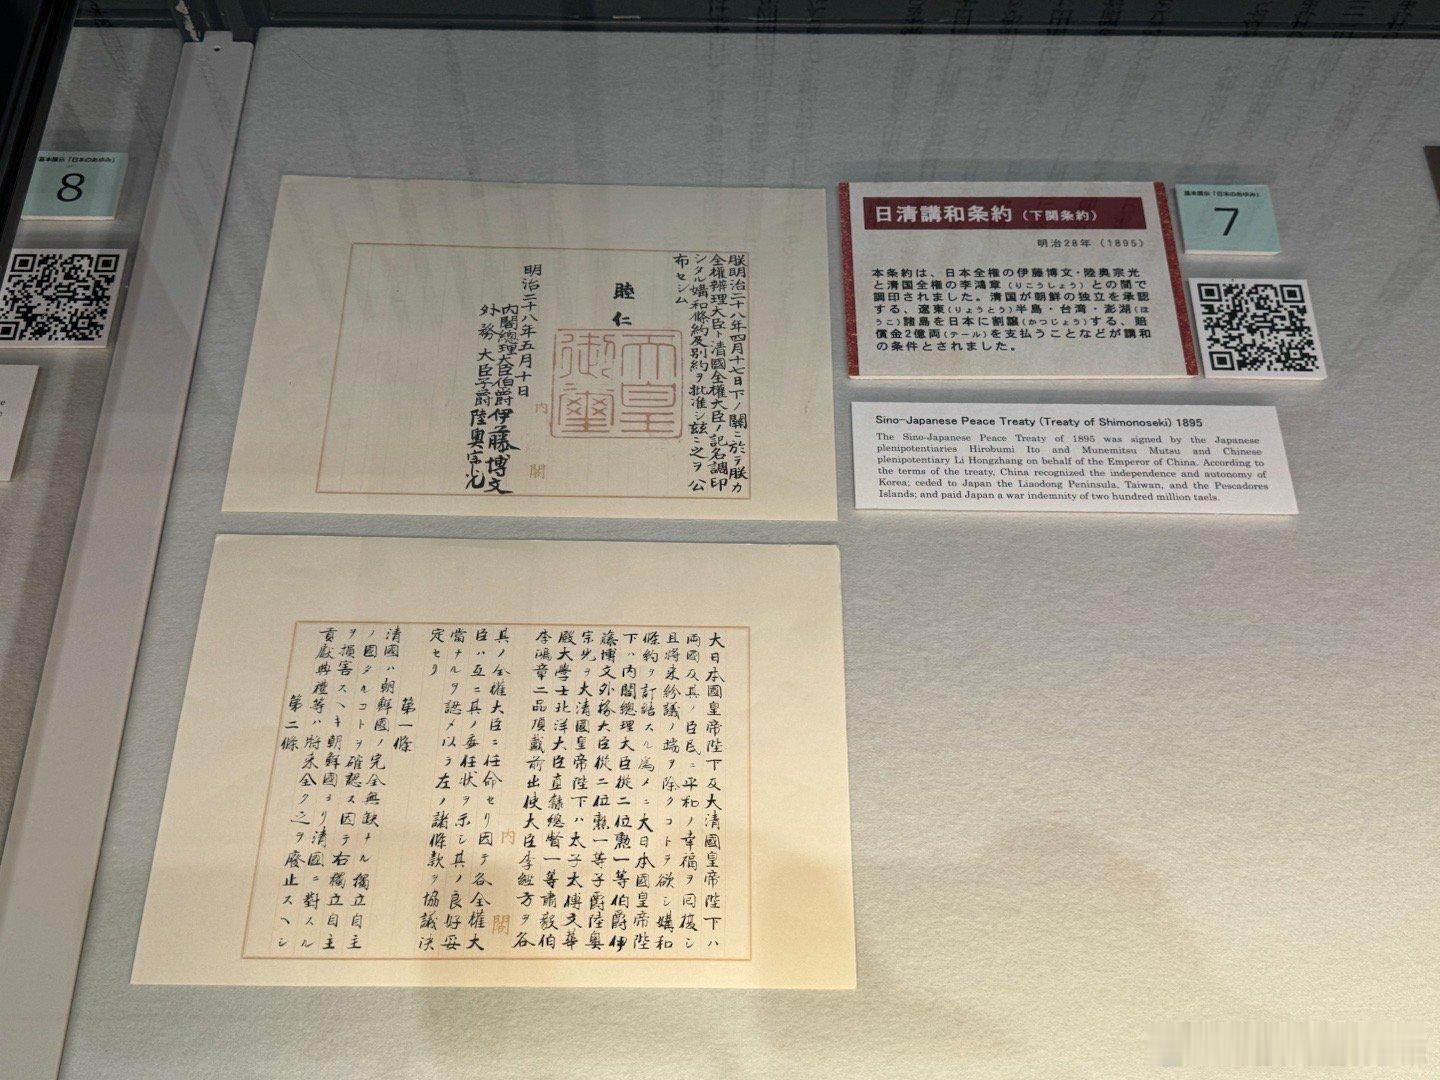 基本展示「日本のあゆみ」
8
朕明治二十八年四月十七日下ノ關ニ於テ朕カ
全權辦理大臣ト清國全權大臣ノ記名調印
シタル媾和條約及別約ヲ批准シ茲ニ之ヲ公
布セシム
睦仁
天皇御璽
明治二十八年五月十日
内閣總理大臣伯爵伊藤博文
外務大臣子爵陸奥宗光
内閣
日清講和条約（下関条約）
明治28年（1895）
本条約は、日本全権の伊藤博文・陸奥宗光
と清国全権の李鴻章（りこうしょう）との間で
調印されました。清国が朝鮮の独立を承認
する、遼東（りょうとう）半島・台湾・澎湖（ほ
うこ）諸島を日本に割譲（かつじょう）する、賠
償金2億両（テール）を支払うことなどが講和
の条件とされました。
基本展示「日本のあゆみ」
7
Sino-Japanese Peace Treaty (Treaty of Shimonoseki) 1895
The Sino-Japanese Peace Treaty of 1895 was signed by the Japanese
plenipotentiaries Hirobumi Ito and Munemitsu Mutsu and Chinese
plenipotentiary Li Hongzhang on behalf of the Emperor of China. According to
the terms of the treaty, China recognized the independence and autonomy of
Korea; ceded to Japan the Liaodong Peninsula, Taiwan, and the Pescadores
Islands; and paid Japan a war indemnity of two hundred million taels.
大日本國皇帝陛下及大清國皇帝陛下ハ
兩國及其ノ臣民ニ平和ノ幸福ヲ囘復シ
且將來紛議ノ端ヲ除クコトヲ欲シ媾和
條約ヲ訂結スル爲メニ大日本國皇帝陛
下ハ内閣總理大臣從二位勲一等伯爵伊
藤博文外務大臣從二位勲一等子爵陸奥
宗光ヲ大清國皇帝陛下ハ太子太傅文華
殿大學士北洋大臣直隷總督一等肅毅伯
李鴻章二品頂戴前出使大臣李經方ヲ各
其ノ全權大臣ニ任命セリ因テ各全權大
臣ハ互ニ其ノ委任状ヲ示シ其ノ良好妥
當ナルヲ認メ以テ左ノ諸條款ヲ協議決
定セリ
第一條
清國ハ朝鮮國ノ完全無缺ナル獨立自主
ノ國タルコトヲ確認ス因テ右獨立自主
ヲ損害スヘキ朝鮮國ヨリ清國ニ對スル
貢獻典禮等ハ將來全ク之ヲ廢止スヘシ
第二條
内閣